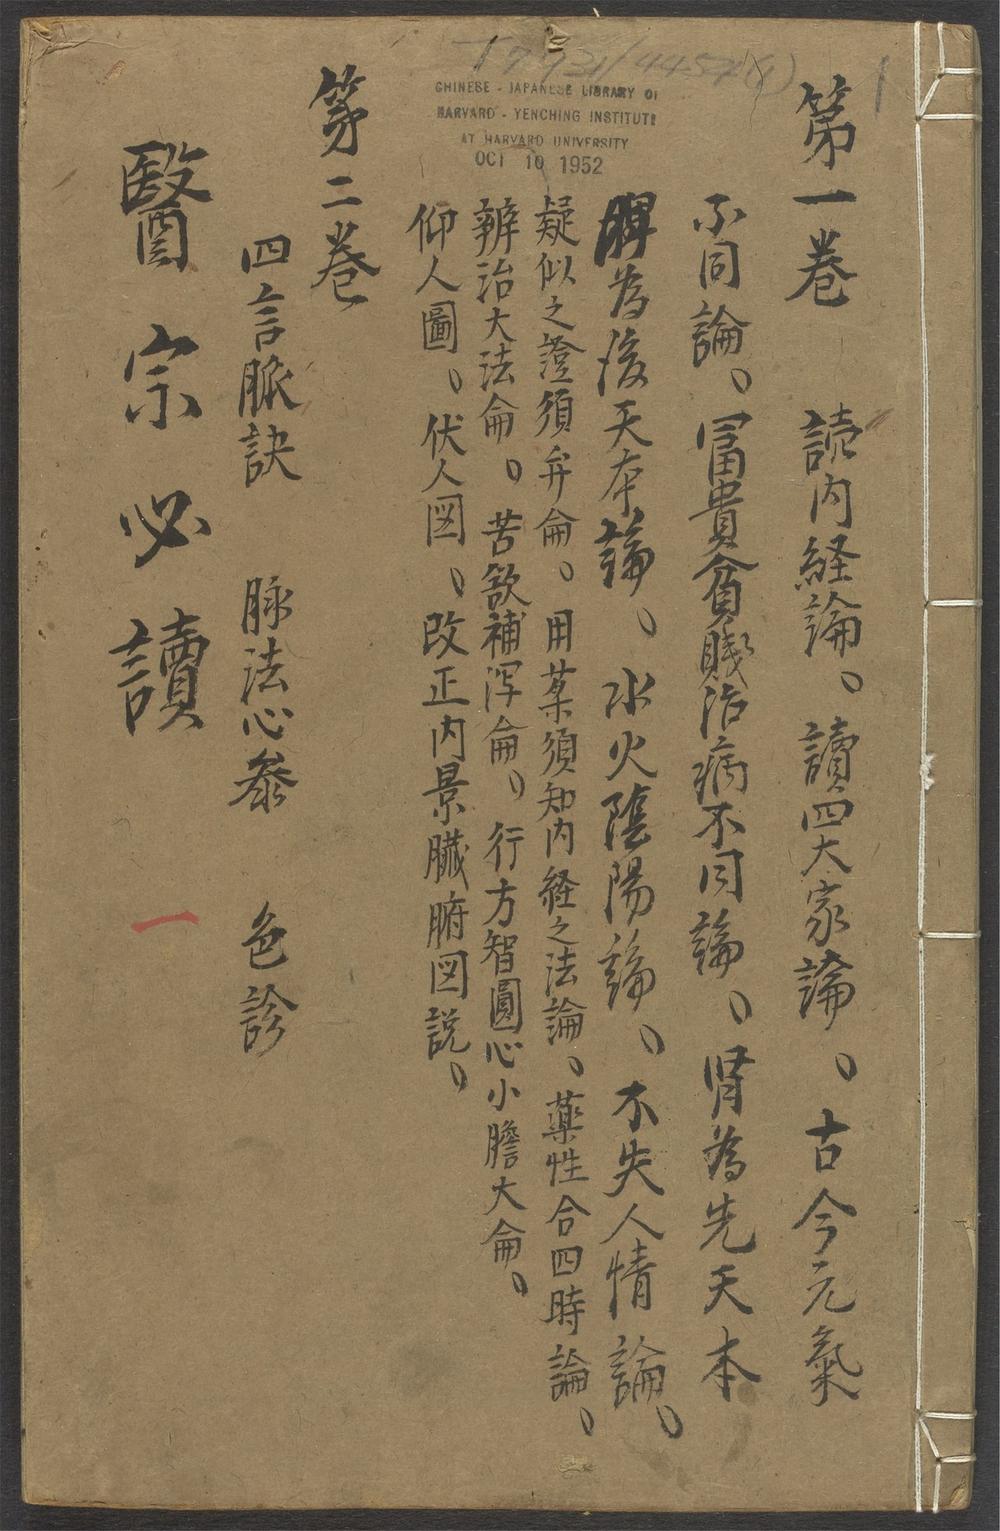 T 7931/4454 (1)
1
CHINESE - JAPANESE LIBRARY OF
HARVARD - YENCHING INSTITUTE
AT HARVARD UNIVERSITY
OCT 10 1952
第一巻 読内経論。讀四大家論。古今元氣
不同論。冨貴貧賎治病不同論。腎為先天本
脾為後天本論、水火陰陽論、不失人情論。
疑似之證須弁侖。用茱須知内経之法論、薬性合四時論、
辨治大法侖。苦欲補泻侖、行方智圓心小膽大侖、
仰人圖、伏人図、改正内景臓腑図説。
第二巻
四言脈訣 脉法心参 色診
醫宗必讀 一